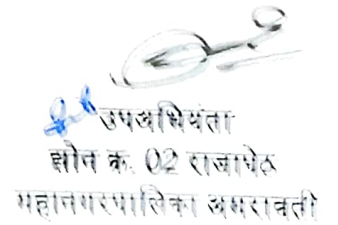 उपअभियंता
झोन क्र. 02 राजापेठ
महानगरपालिका अमरावती